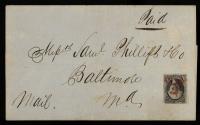 Paid
Messrs Saml Phillips & Co
Baltimore
Mail. Md